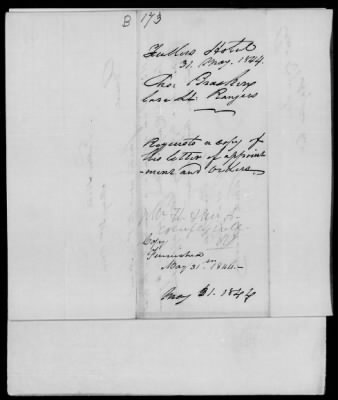 B 173
Fullers Hotel
31. May. 1844.
Tho:
late Lt: Rangers
Requests a copy of
the letter of appoint
-ment and orders.
Copy
Furnished
May 31st 1844.-
May 31. 1844